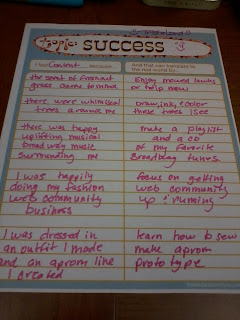 topic: success
I feel Content because
And that can translate to
the real world by...
the scent of fresh cut
grass came to mind
Enjoy mowed lawns
or help mow
there were whimsical
trees around me
draw, ink, color
these trees I see
there was happy
uplifting musical
broadway music
surrounding me
make a playlist
and a cd
of my favorite
Broadway tunes.
I was happily
doing my fashion
web community
business
focus on getting
web community
up & running
I was dressed in
an outfit I made
and an apron line
I created
learn how to sew
make apron
prototype